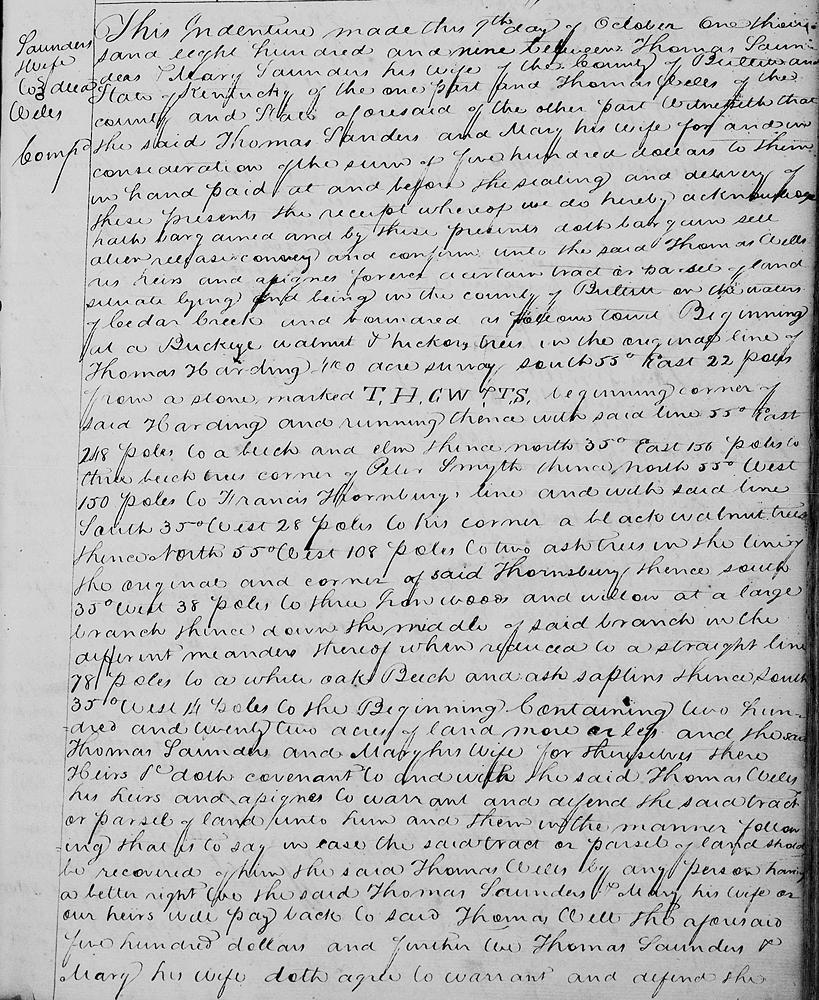 Saunders
& wife
To } deed
Wells
Comp^d
This Indenture made this 9th day of October one thou-
sand eight hundred and nine between Thomas Saun-
ders & Mary Saunders his wife of the County of Bullitt and
State of Kentucky of the one part and Thomas Wells of the
county and State aforesaid of the other part Witnesseth that
the said Thomas Sanders and Mary his wife for and in
consideration of the sum of five hundred dollars to them
in hand paid at and before the sealing and delivery of
these presents the receipt whereof we do hereby acknowledge
hath bargained and by these presents doth bargain sell
alien release convey and confirm unto the said Thomas Wells
his heirs and assignes forever a certain tract or parsel of land
situate lying and being in the county of Bullitt on the waters
of Cedar Creek and bounded as follows towit Beginning
at a Buckeye walnut & hickory trees in the original line of
Thomas Harding 400 acre survay south 55° East 22 poles
from a stone marked T, H, G W & T S, beginning corner of
said Harding and running thence with said line 55° East
248 poles to a beech and elm thence north 35° East 156 poles to
three beech trees corner of Peter Smyth thence north 55° West
150 poles to Francis Thornburys line and with said line
South 35° West 28 poles to his corner a black walnut trees
thence North 55° West 108 poles to two ash trees in the line of
the original and corner of said Thornsbury thence south
35° West 38 poles to three Iron woods and willow at a large
branch thence down the middle of said branch in the
different meanders thereof when reduced to a straight line
78 poles to a white oak Beech and ash saplins thence South
35° West 14 poles to the Beginning Containing two hun-
dred and twenty two acres of land more or less and the said
Thomas Saunders and Mary his Wife for themselves there
Heirs &c doth covenant to and with the said Thomas Wells
his heirs and assignes to warrant and defend the said tract
or parsel of land unto him and them in the manner follow-
ing that is to say in case the said tract or parsel of land should
be recovered of him the said Thomas Wells by any person having
a better right we the said Thomas Saunders & Mary his wife or
our heirs will pay back to said Thomas Well the aforesaid
five hundred dollars and further we Thomas Saunders &
Mary his wife doth agree to warrant and defend the